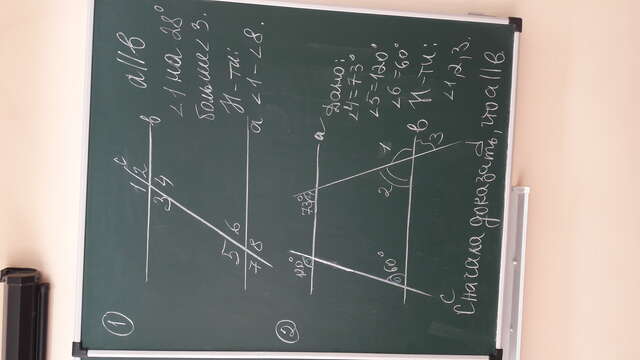 ①
c
1 2
3 4
в
5 6
7 8
a
a∥в
∠1 на 28°
больше ∠3.
Н-ти:
∠1-∠8.
②
120°
73°
a
1
2
60°
3
в
c
d
Дано:
∠4=73°
∠5=120°
∠6=60°
Н-ти:
∠1,2,3.
Сначала доказать, что a∥в